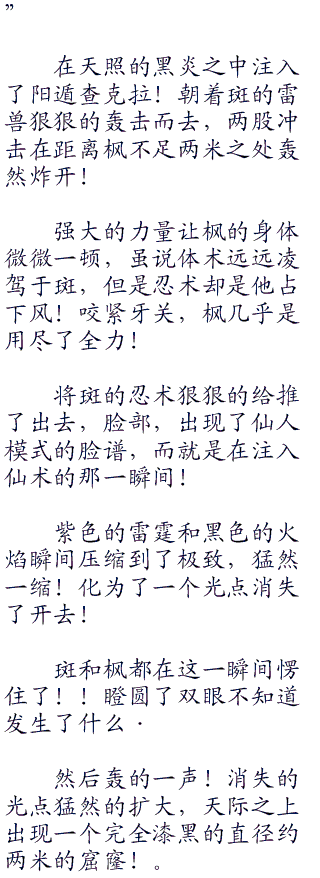 ”
在天照的黑炎之中注入
了阳遁查克拉！朝着斑的雷
兽狠狠的轰击而去，两股冲
击在距离枫不足两米之处轰
然炸开！
强大的力量让枫的身体
微微一顿，虽说体术远远凌
驾于斑，但是忍术却是他占
下风！咬紧牙关，枫几乎是
用尽了全力！
将斑的忍术狠狠的给推
了出去，脸部，出现了仙人
模式的脸谱，而就是在注入
仙术的那一瞬间！
紫色的雷霆和黑色的火
焰瞬间压缩到了极致，猛然
一缩！化为了一个光点消失
了开去！
斑和枫都在这一瞬间愣
住了！！瞪圆了双眼不知道
发生了什么·
然后轰的一声！消失的
光点猛然的扩大，天际之上
出现一个完全漆黑的直径约
两米的窟窿！。